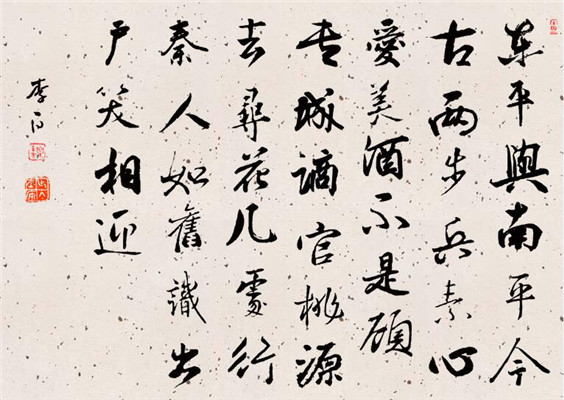 東平與南平今
古两步兵素心
愛美酒不是顧
专城謫官桃源
去尋花几處行
秦人如舊識出
户笑相迎
李白